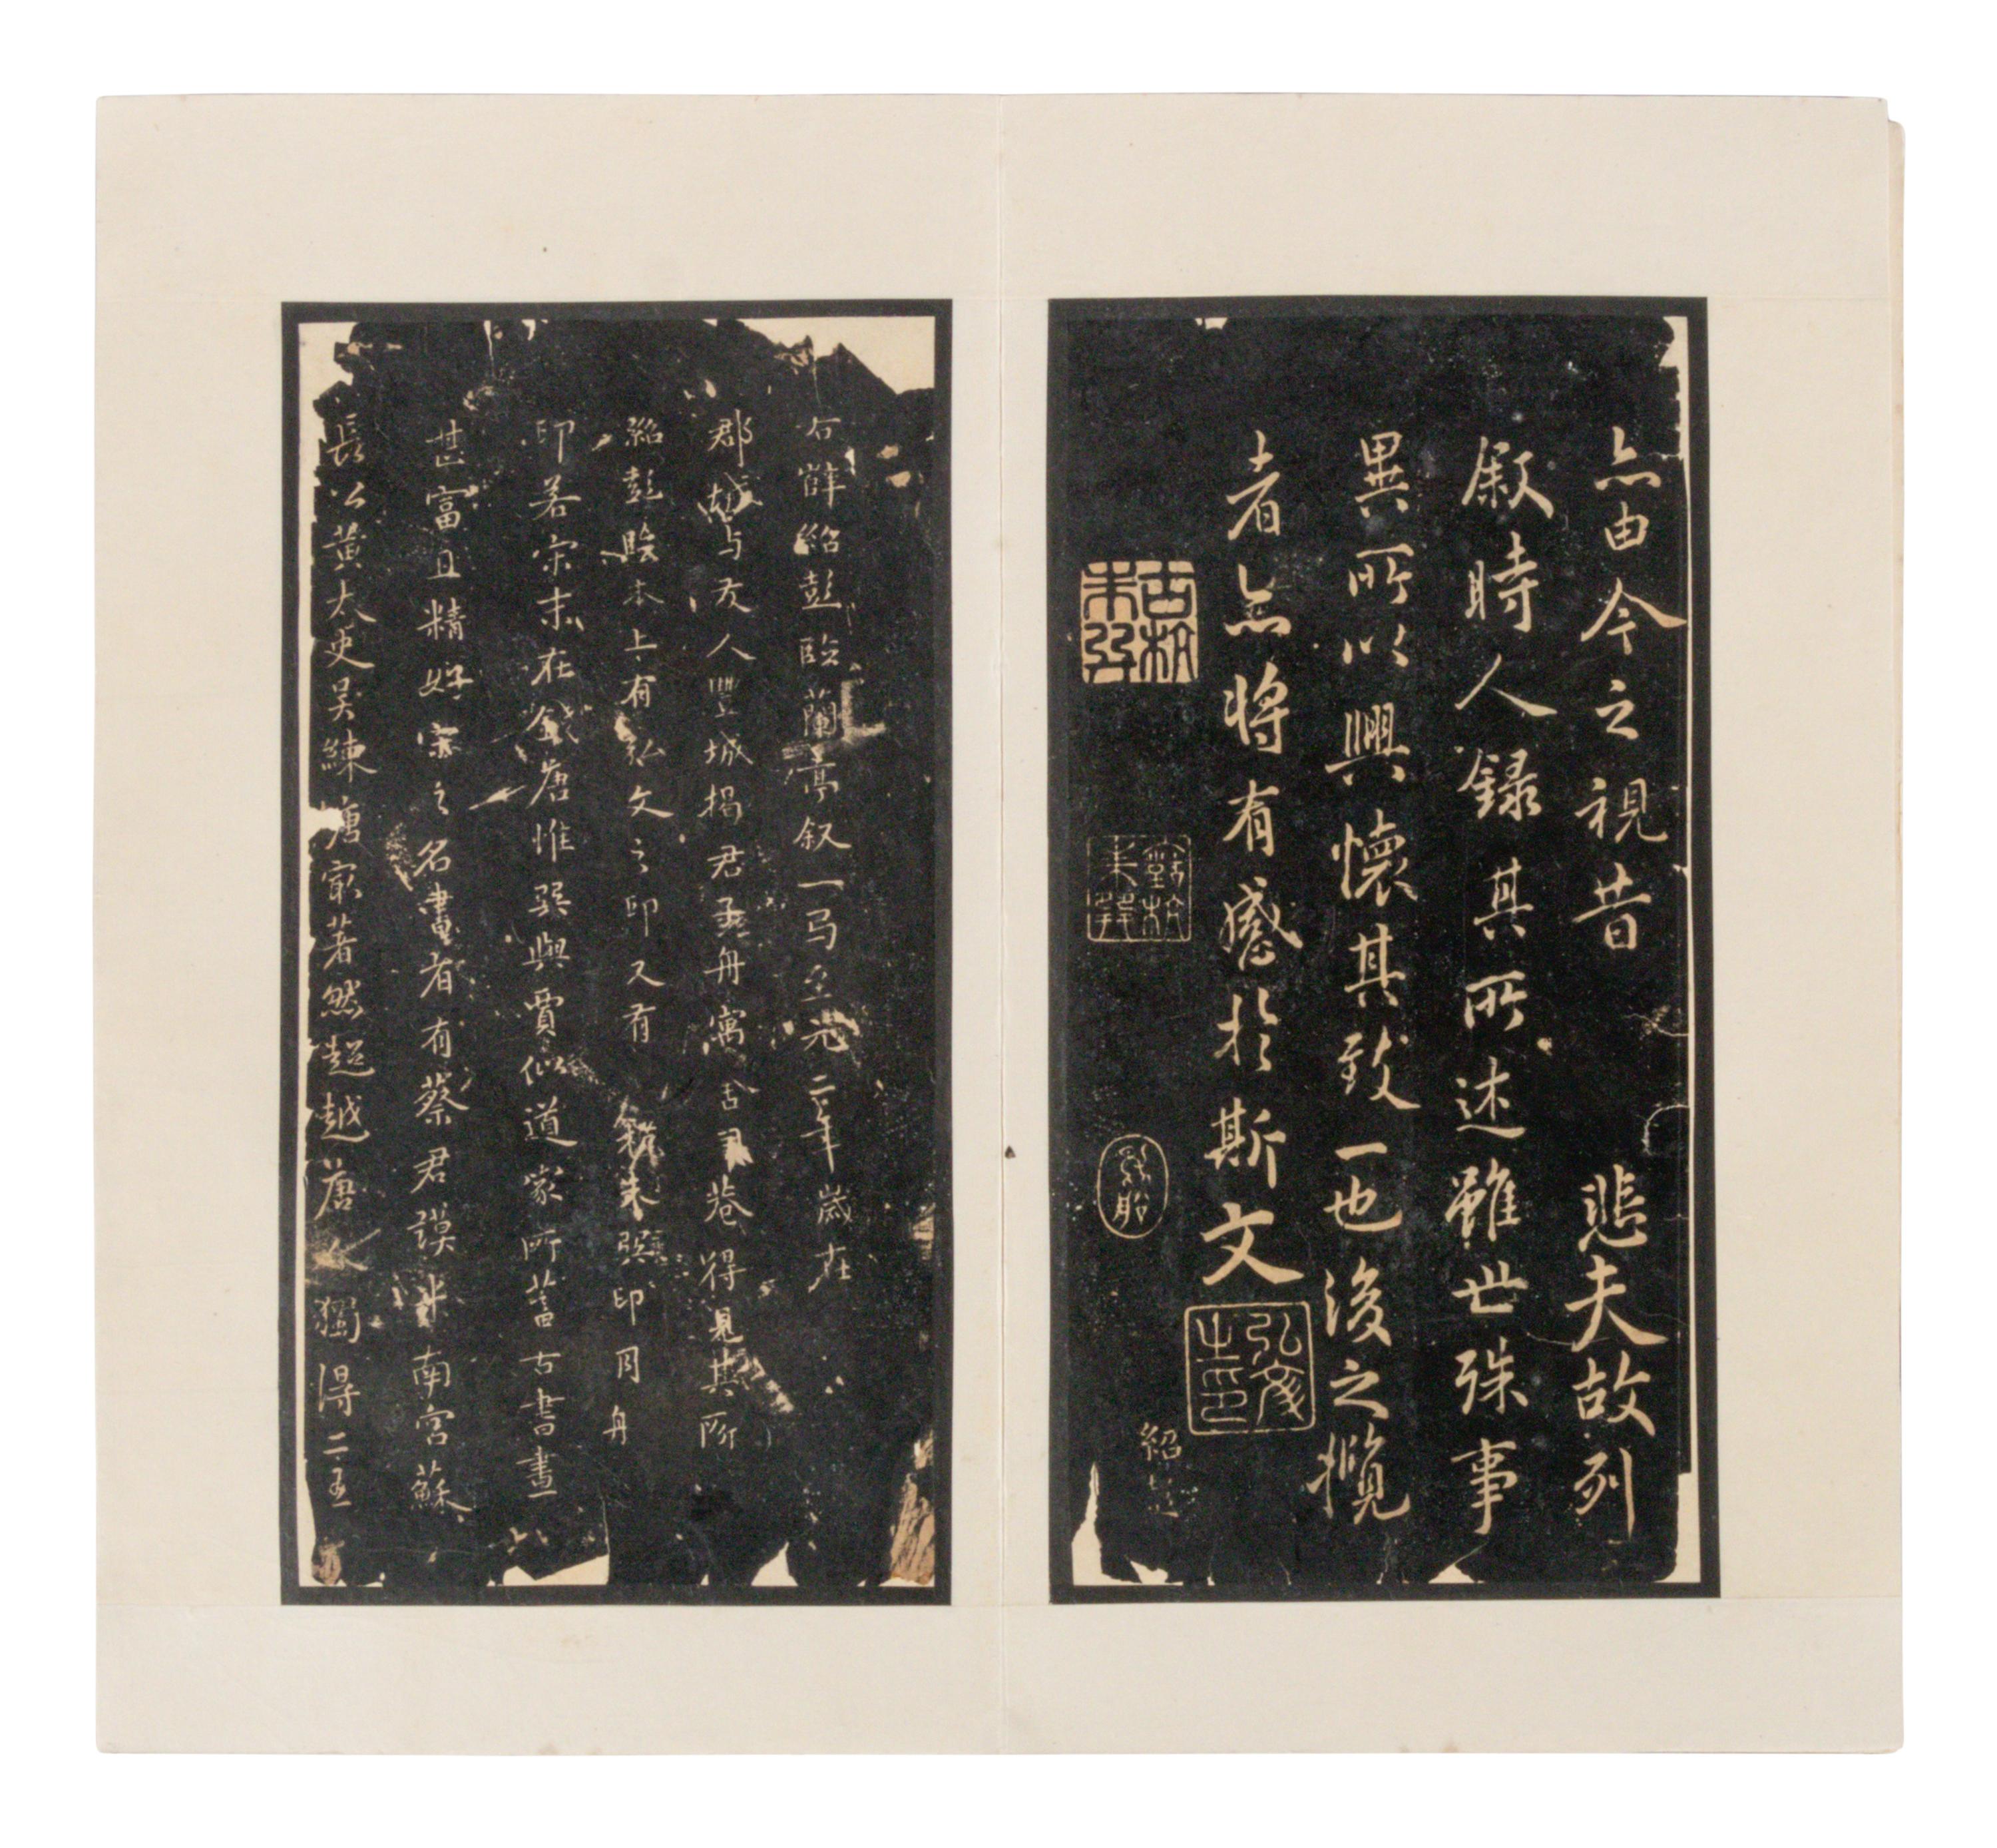 亦由今之視昔 悲夫故列
敘時人録其所述雖世殊事
異所以興懷其致一也後之攬
者亦將有感於斯文
弘文之印
紹彭
右薛紹彭臨蘭亭叙一局至元二年歲在
郡城与友人豐城揭君孟舟寓舍委巷得見其所
紹彭臨本上有弘文之印又有
印若宋末在錢唐惟與賈似道家所蓄古書畫
甚富且精好宋之名書者有蔡君謨米南宮蘇
長公黃太史吳練塘寂著然超越唐人獨得二王